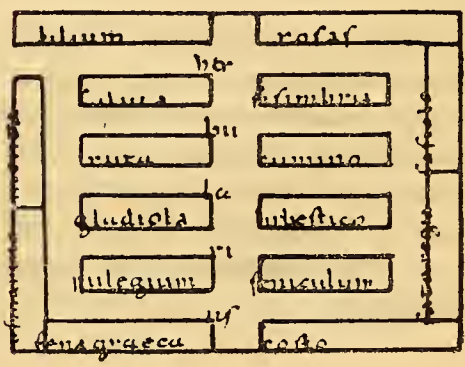 lilium
rosas
her
salvia
sisimbria
bu
ruta
cumino
la
gladiola
lubestico
ri
pulegium
feniculum
us
fenagraeca
costo